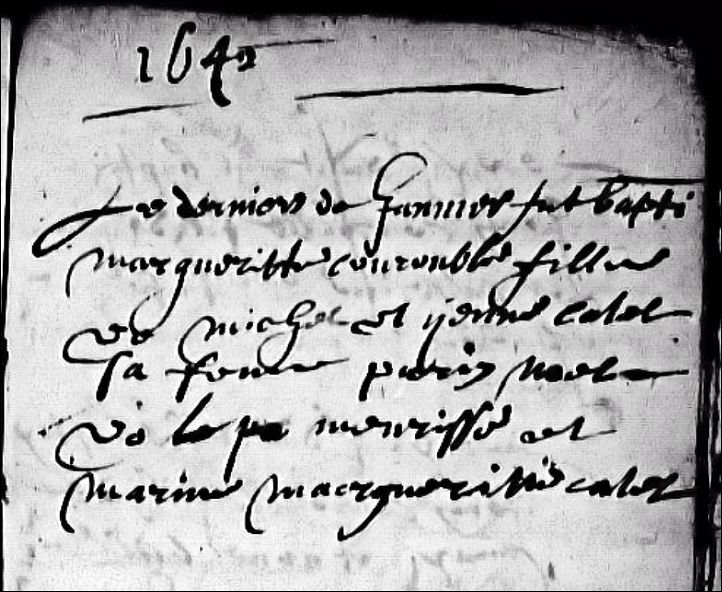 1642
Le dernier de Janvier fut bapti
margueritte couroublé fille
de michel et jenne catel
sa feme parin noel
de le meurisse et
marine macrgueritte catel